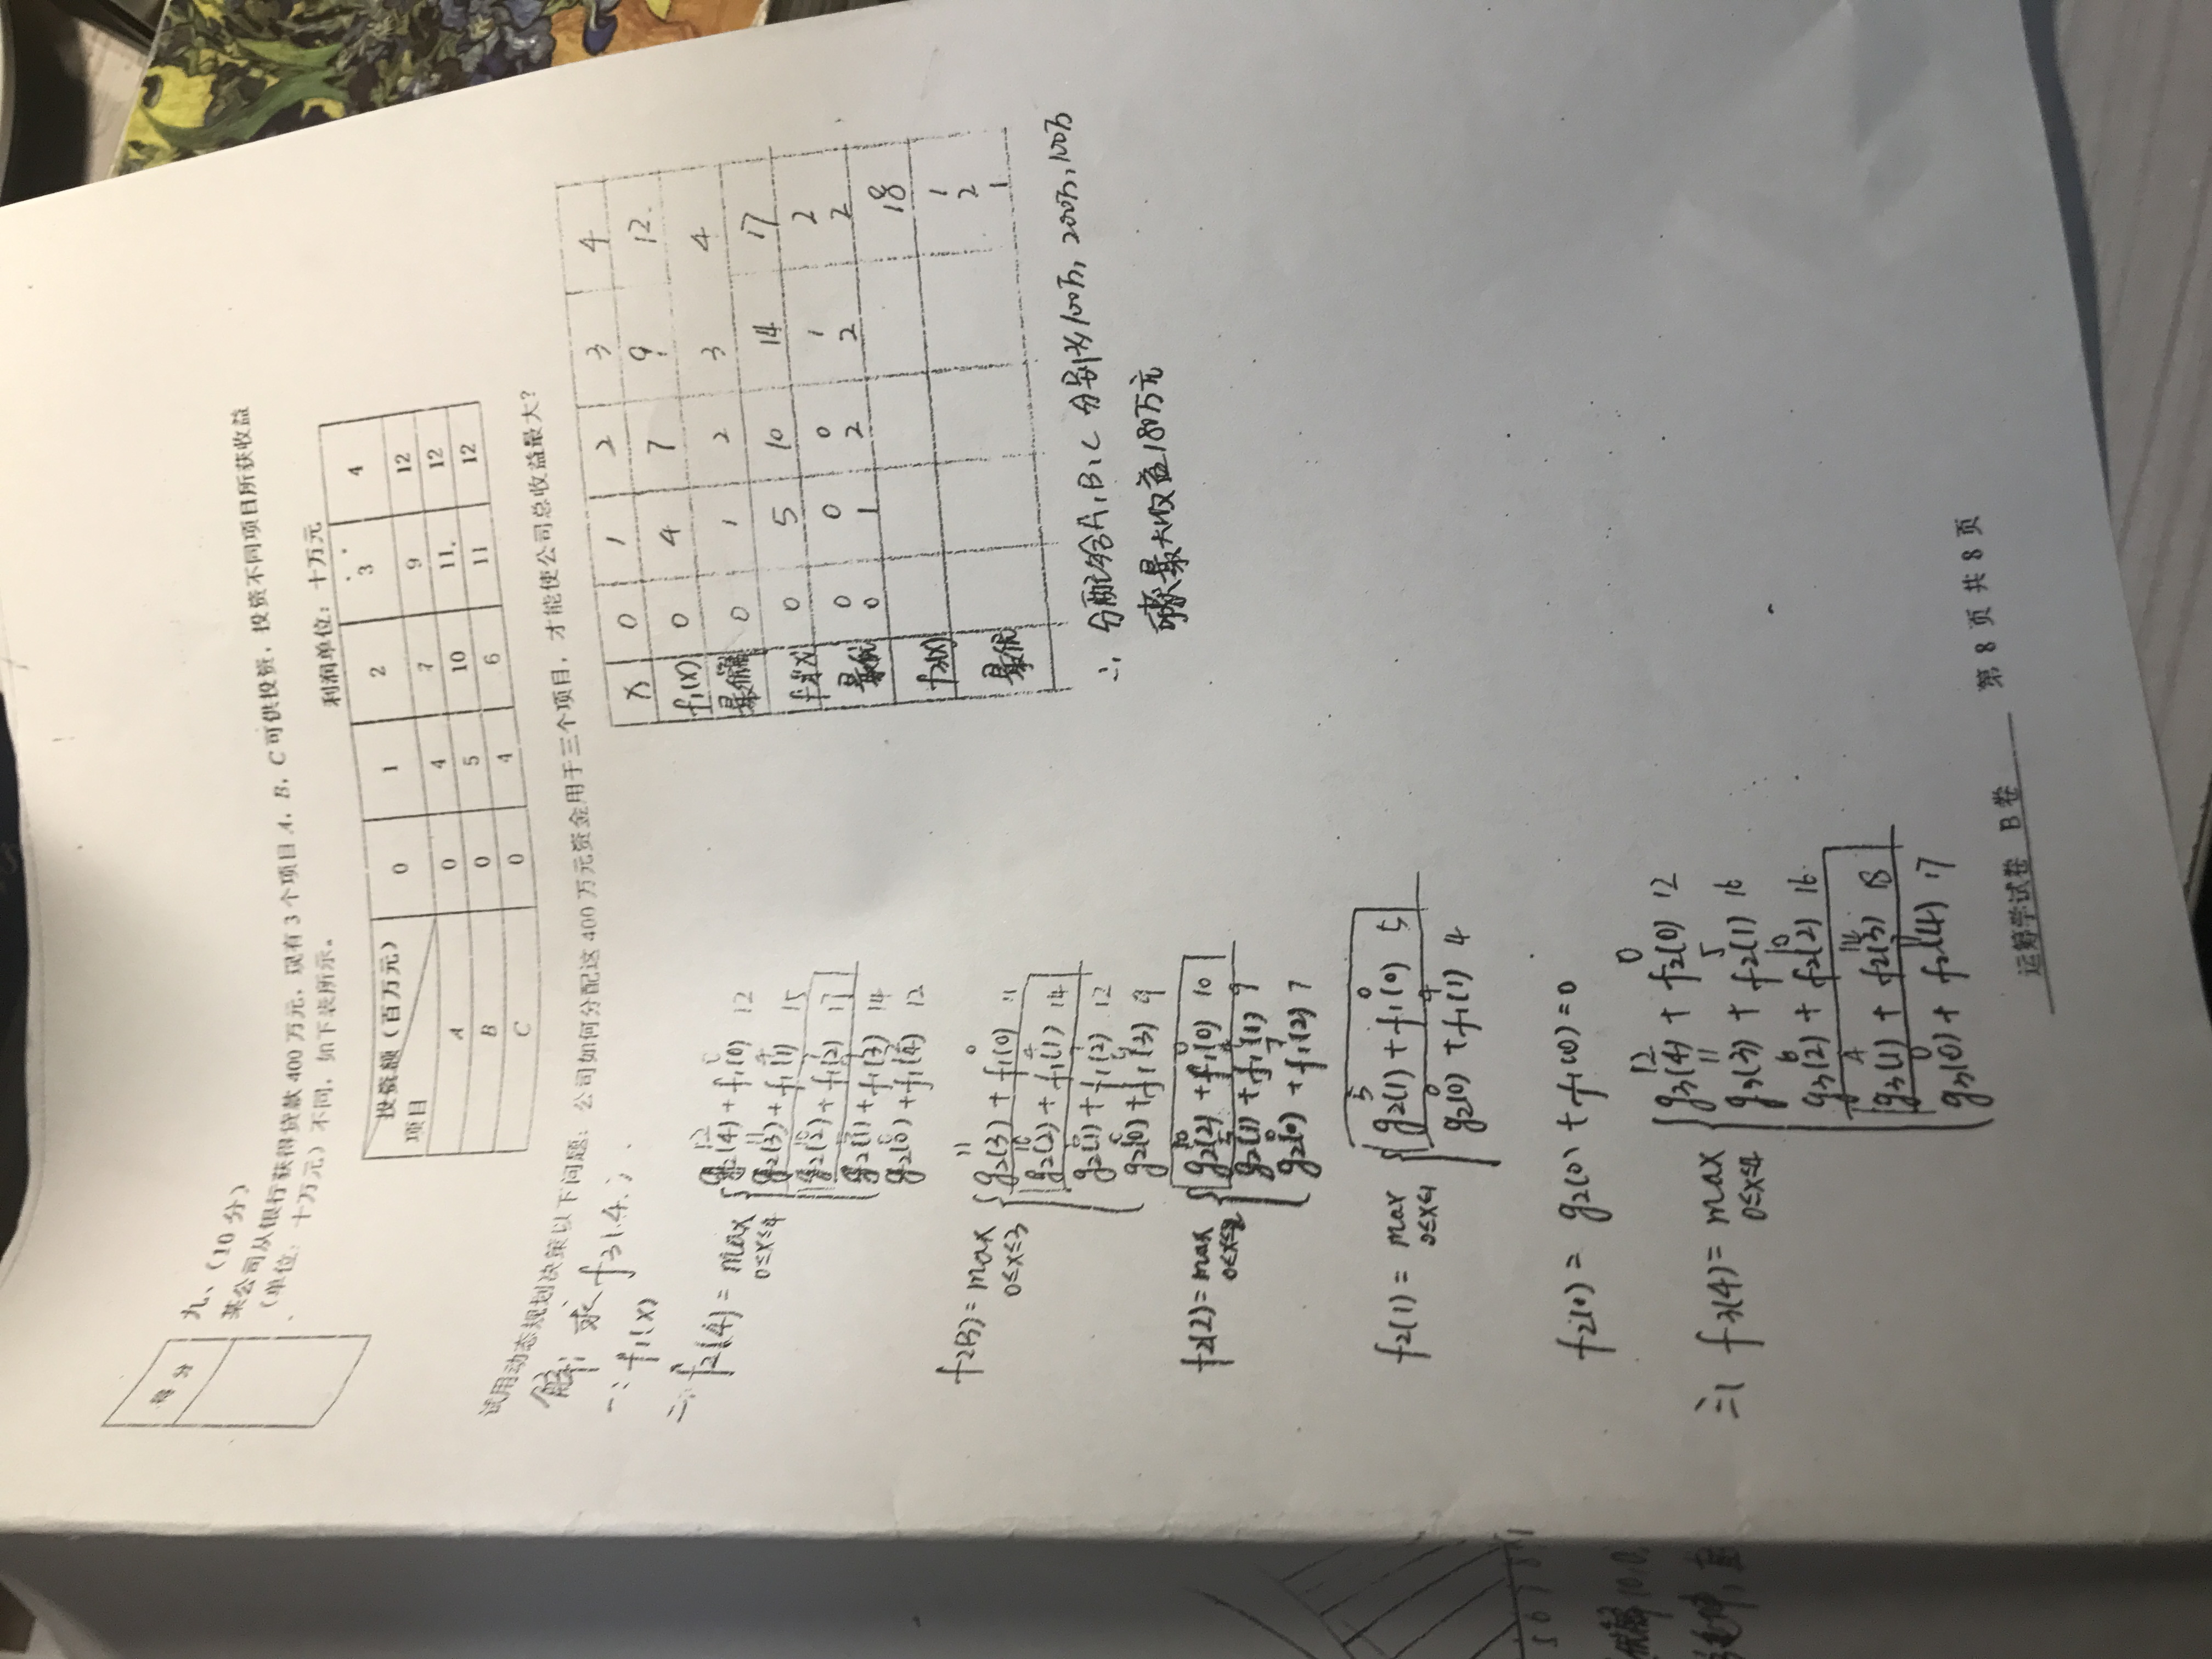 得分
九、（10分）
某公司从银行获得贷款400万元，现有3个项目A，B，C可供投资，投资不同项目所获收益
（单位：十万元）不同，如下表所示。
利润单位：十万元
投资额（百万元） 0 1 2 3 4
项目
A 0 4 7 9 12
B 0 5 10 11 12
C 0 4 6 11 12
试用动态规划决策以下问题：公司如何分配这400万元资金用于三个项目，才能使公司总收益最大？
解: 求 f3(4)
一: f1(x)
二: f2(4) = max 0≤x≤4
g2(4) + f1(0) 12
g2(3) + f1(1) 15
g2(2) + f1(2) 17
g2(1) + f1(3) 14
g2(0) + f1(4) 12
f2(3) = max 0≤x≤3
g2(3) + f1(0) 11
g2(2) + f1(1) 14
g2(1) + f1(2) 12
g2(0) + f1(3) 9
f2(2) = max 0≤x≤2
g2(2) + f1(0) 10
g2(1) + f1(1) 9
g2(0) + f1(2) 7
f2(1) = max 0≤x≤1
g2(1) + f1(0) 5
g2(0) + f1(1) 4
f2(0) = g2(0) + f1(0) = 0
三: f3(4) = max 0≤x≤4
g3(4) + f2(0) 12
g3(3) + f2(1) 16
g3(2) + f2(2) 16
g3(1) + f2(3) 18
g3(0) + f2(4) 17
x 0 1 2 3 4
f1(x) 0 4 7 9 12
最优解 0 1 2 3 4
f2(x) 0 5 10 14 17
最优 0 0 0 1 2
0 1 2 2 2
f3(x) 18
最优 1
2
1
∴ 分配给A,B,C 分别为100万, 200万, 100万
可获最大收益180万元
5 6 7 8
运筹学试卷 B卷 第 8 页 共 8 页